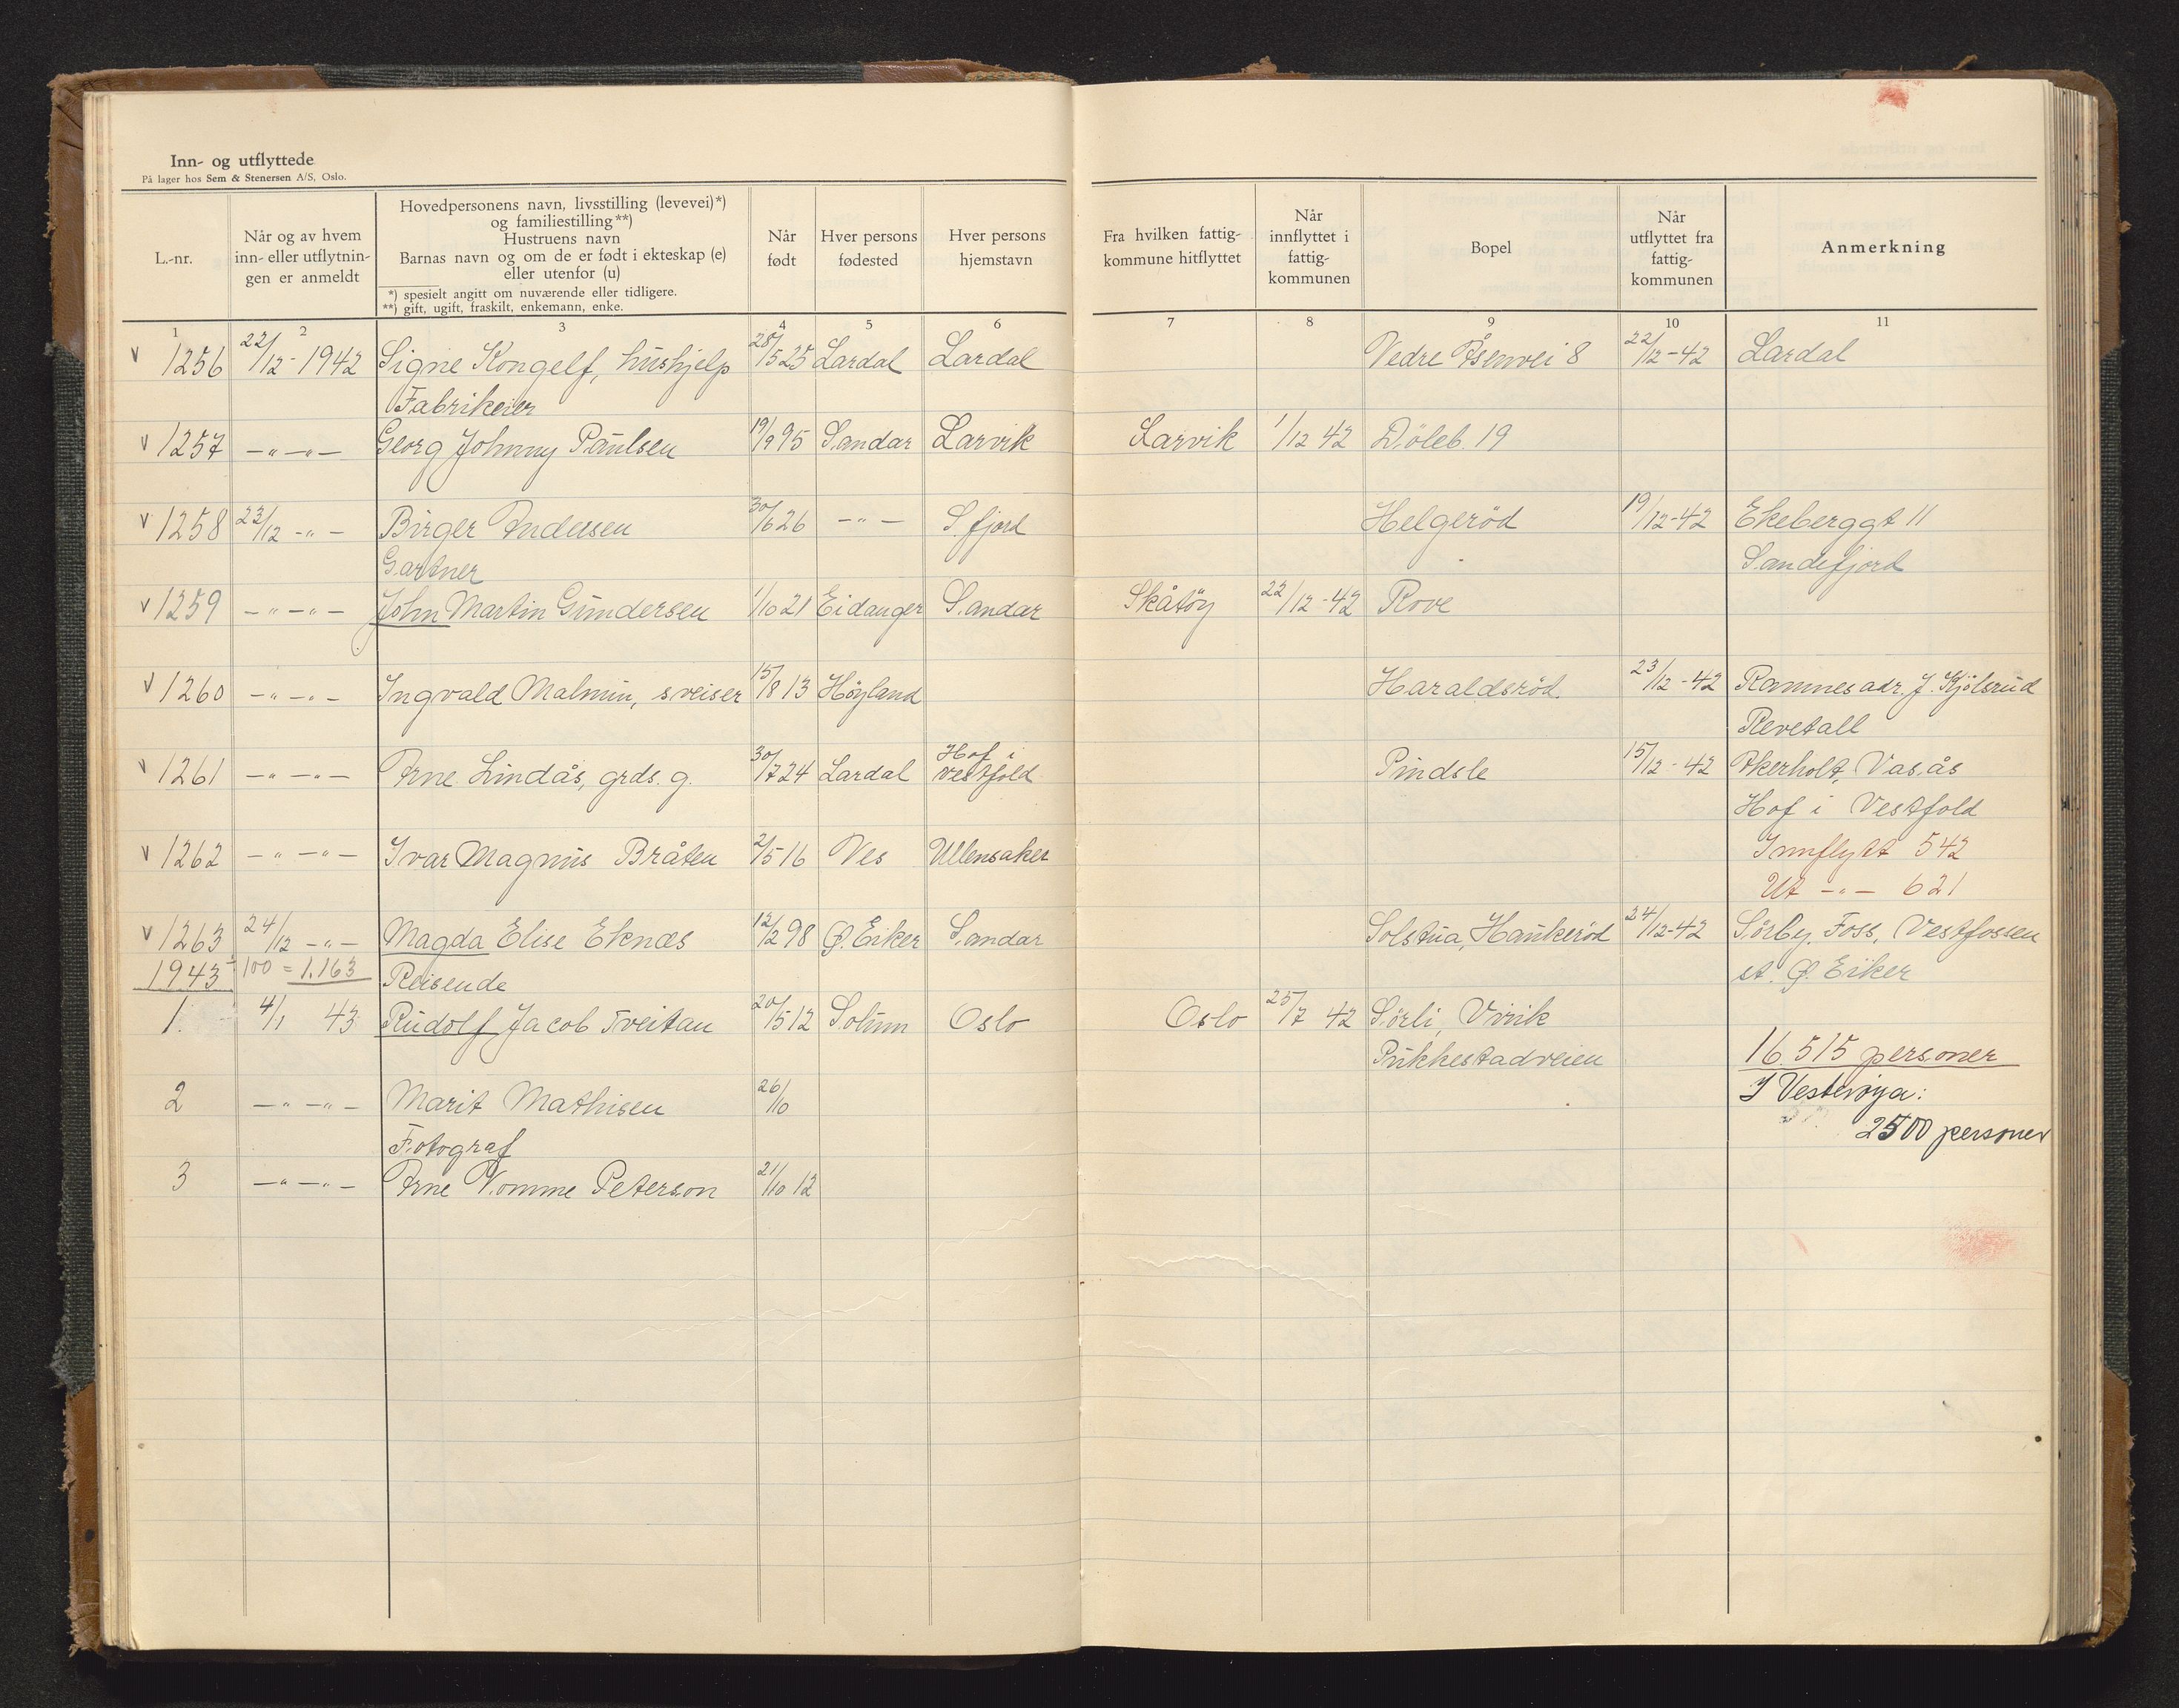 Inn- og utflyttede
På lager hos Sem & Stenersen A/S, Oslo.
L.-nr. | Når og av hvem inn- eller utflytnin- gen er anmeldt | Hovedpersonens navn, livsstilling (levevei)*) og familiestilling**) Hustruens navn Barnas navn og om de er født i ekteskap (e) eller utenfor (u) | Når født | Hver persons fødested | Hver persons hjemstavn | Fra hvilken fattig- kommune hitflyttet | Når innflyttet i fattig- kommunen | Bopel | Når utflyttet fra fattig- kommunen | Anmerkning
*) spesielt angitt om nuværende eller tidligere.
**) gift, ugift, fraskilt, enkemann, enke.
1 2 3 4 5 6 7 8 9 10 11
v 1256 22/12-1942 Signe Kongelf, hushjelp 28/5 25 Lardal Lardal Vedre Åsenvei 8 22/12-42 Lardal
Fabrikeier
v 1257 —„—„— Georg Johnny Paulsen 19/9 95 Sandar Larvik Larvik 1/12 42 Döleb. 19
v 1258 23/12 -„- Birger Andersen 30/6 26 -„- S.fjord Helgeröd 19/12-42 Ekeberggt 11
Gartner Sandefjord
v 1259 —„—„— John Martin Gundersen 1/10 21 Eidanger Sandar Skåtöy 22/12-42 Rove
v 1260 —„—„— Ingvald Malmin, sveiser 15/8 13 Höyland Haraldsröd. 23/12-42 Ramnes adr. J. Kjölsrud
Revetall
v 1261 —„—„— Arne Lindås, grds. g. 30/7 24 Lardal Hof i Vestfold Pindsle 15/12-42 Akerholt, Vasås
Hof i Vestfold
v 1262 —„—„— Ivar Magnus Bråten 2/5 16 Ves Ullensaker Innflytt 542
Ut -„- 621
v 1263 24/12 -„- Magda Elise Eknæs 12/2 98 Ø. Eiker Sandar Solstua, Haukeröd 24/12-42 Sörby, Foss, Vestfossen
1943 ÷ 100 = 1.163 Reisende st. Ø. Eiker
1. 4/1 43 Rudolf Jacob Tveitan 20/5 12 Solum Oslo Oslo 25/7 42 Sörli, Virik
Pukkestadveien 16.515 personer
2 —„—„— Marit Mathisen 26/10 I Vesteröya:
Fotograf 2500 personer
3 —„—„— Arne Vomme Peterson 21/10 12